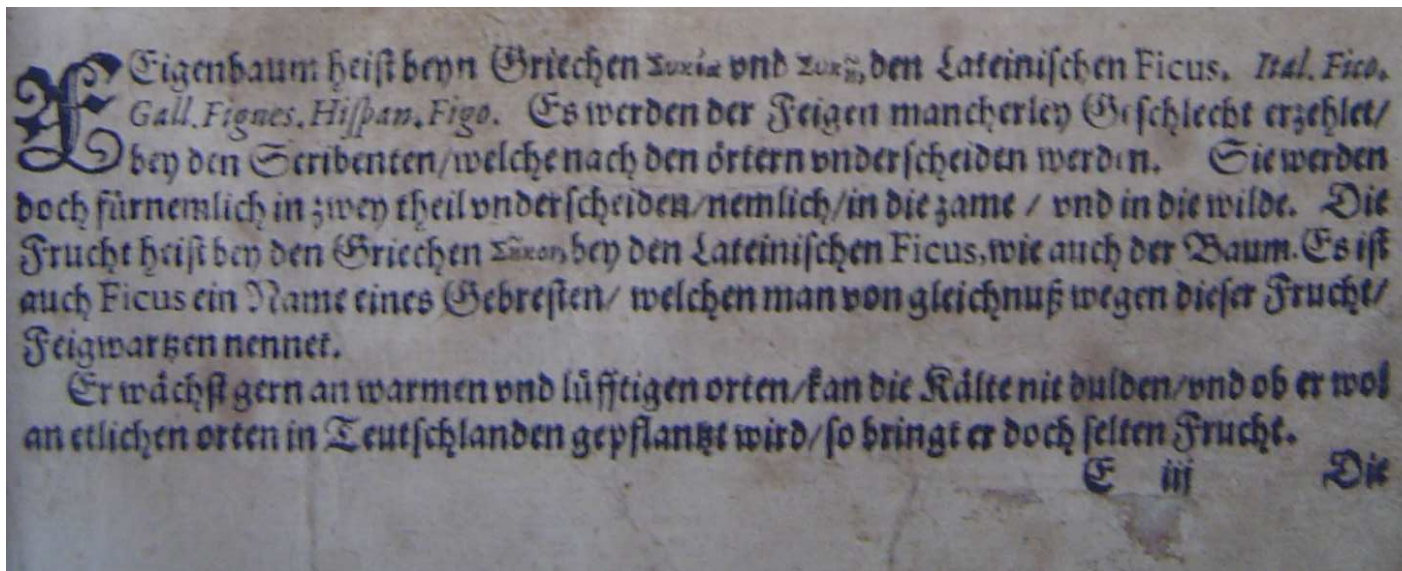 FEigenbaum heist beyn Griechen Συκία vnd Συκῆ, den Lateinischen Ficus. Ital. Fico.
Gall. Fignes. Hispan. Figo. Es werden der Feigen mancherley Geschlecht erzehlet/
bey den Scribenten/welche nach den örtern vnderscheiden werden. Sie werden
doch fürnemlich in zwey theil vnderscheiden/nemlich/in die zame / vnd in die wilde. Die
Frucht heist bey den Griechen Σῦκον, bey den Lateinischen Ficus, wie auch der Baum. Es ist
auch Ficus ein Name eines Gebresten/ welchen man von gleichnuß wegen dieser Frucht/
Feigwartzen nennet.
Er wächst gern an warmen vnd lüfftigen orten/kan die Kälte nit dulden/vnd ob er wol
an etlichen orten in Teutschlanden gepflantzt wird/so bringt er doch selten Frucht.
E iij Die